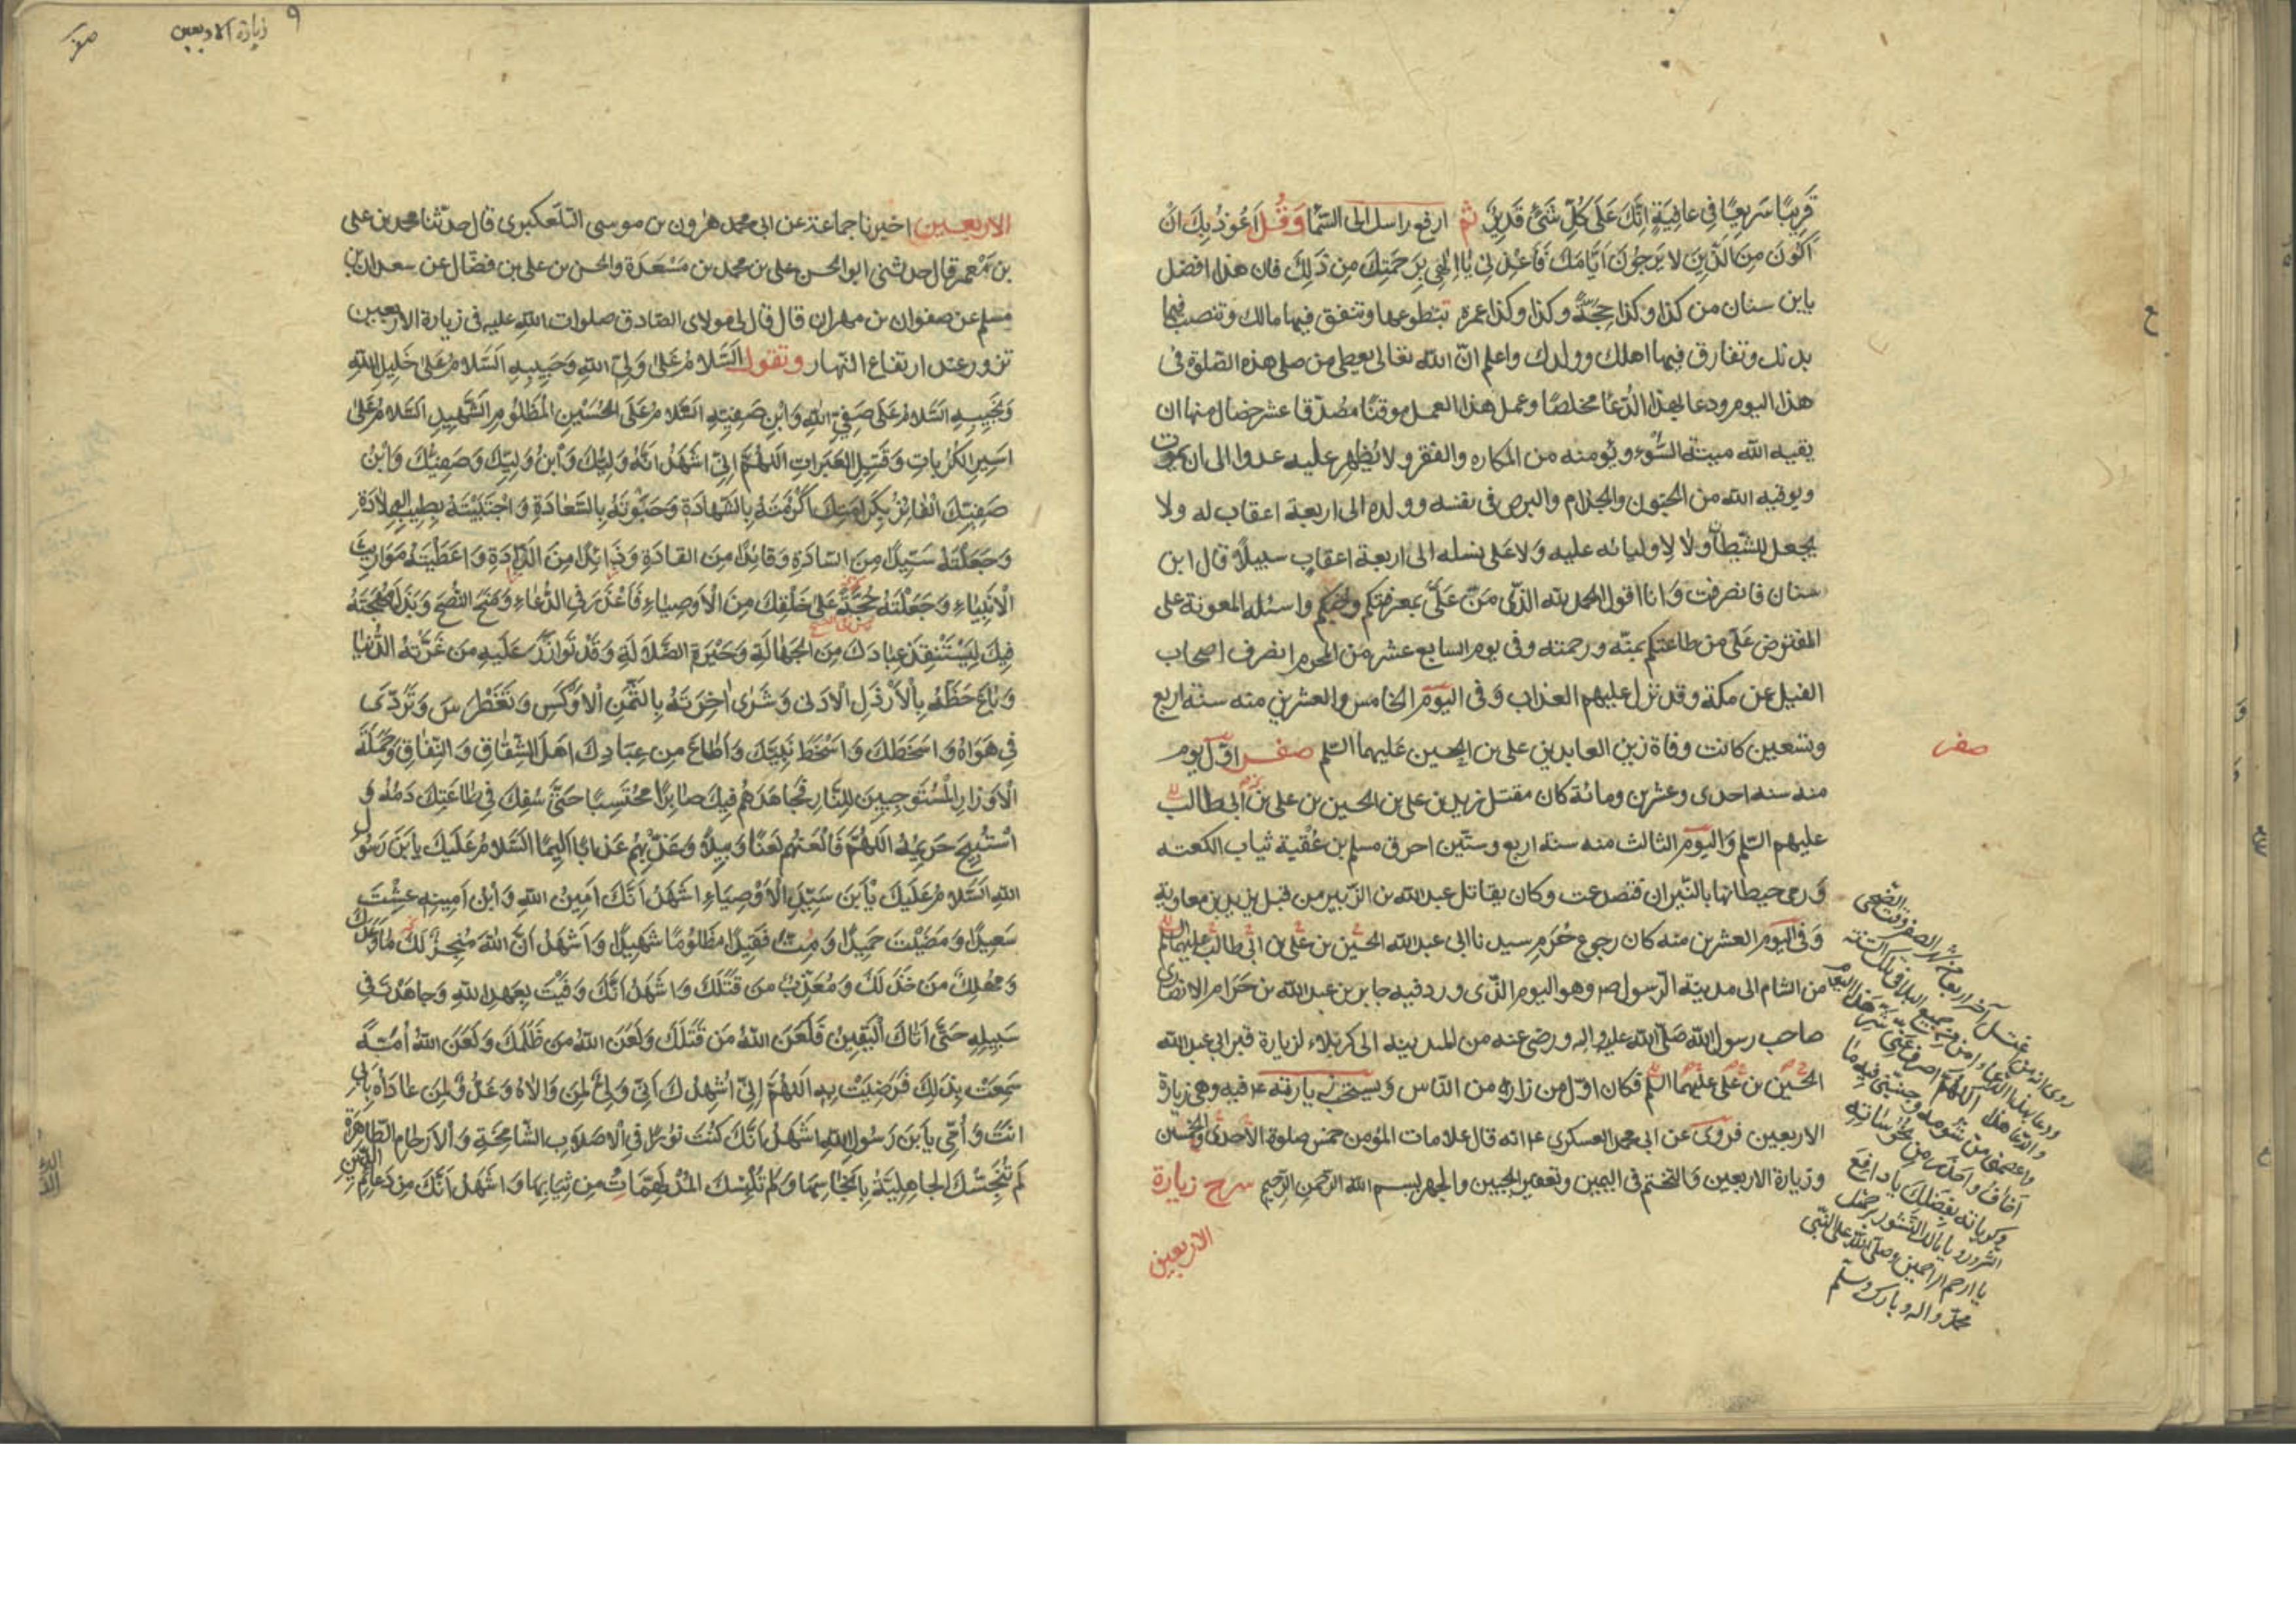 قَرِيبًا سَرِيعًا فِي عَافِيَةٍ اِنَّكَ عَلَى كُلِّ شَيْءٍ قَدِيرٌ ثم ارفع راسك الى السّمآء وَقُل اَعُوذُ بِكَ اَنْ
اَكُونَ مِنَ الَّذِينَ لَا يَرْجُونَ اَيَّامَكَ فَاَعِذْنِي يٰا اِلٰهِي بِرَحْمَتِكَ مِنْ ذَلِكَ فان هذا افضل
يابن سنان من كذا وكذا حِجَّةً وكذا وكذا عمرة تتطوعها وتنفق فيها مالك وتنصب فيها
بدنك وتفارق فيها اهلك وولدك واعلم انّ الله تعالى يعطى من صلى هذه الصّلوة فى
هذا اليوم ودعا بهذا الدّعآء مخلصًا وعمل هذا العمل موقنًا مصدّقا عشر خصال منها ان
يقيه الله ميتة السُّوء ويؤمنه من المكاره والفقر ولا يُظهر عليه عدوا الى ان يموت
ويوقيه الله من الجنون والجذام والبرص فى نفسه وولده الى اربعة اعقاب له ولا
يجعل للشّيطان ولا لاوليائه عليه وَلا عَلى نسله الى اربعة اعقاب سبيلاً قال ابن
سنان فانصرفت وَانا اقول الحمد لله الذّى مَنّ عَلَىّ بمعرفتكم وحُبكم واسئله المعونة على
المفترض عَلَىّ من طاعتكم بمنّه ورحمته وفى يوم السابع عشر من المحرم انصرف اصحاب
الفيل عن مكة وقد نزل عليهم العذاب وَفى اليَوم الخامس والعشرين منه سنة اربع
وتسعين كانت وفاة زين العابدين على بن الحسين عليهما السّلم صفر اوّل يوم
منه سنه احدى وعشرين ومائة كان مقتل زيد بن على بن الحسين بن على بن ابى طالب
عليهم السّلم وَاليَوم الثالث منه سنة اربع وستّين احرق مسلم بن عُقبة ثياب الكعبه
وَرمى حيطانها بالنّيران فتصدعت وكان يقاتل عبد الله بن الزّبير من قبل يزيد بن معاوية
وَفى اليَوم العشرين منه كان رجوع حُرَم سيدنا ابى عبد الله الحُسَين بن عَلى بن ابى طالب عليهما السّلم
من الشام الى مدينة الرّسول ص وهو اليوم الذّى ورد فيه جابر بن عبد الله بن حَرَام الانصَارى
صاحب رسول الله صَلّى الله عليه واله ورضى عنه من المدينه الى كربلاء لزيارة قبر ابى عبد الله
الحُسَين بن عَلى عليهما السلم فكان اوّل من زاره من النّاس وَيستحبّ زيارته ع فيه وهى زيارة
الاربعين فروى عن ابى محمد العسكرى ع انه قال علامات المؤمن خمس صلوة الاحدى والخمسين
وزيارة الاربعين وَالتختم فى اليمين وتعفير الجبين والجهر بسم الله الرّحمن الرّحيم شرح زيارة
الاربعين
صفر
ودعا بهذا الدّعاء امن من جميع البلا
والدّعا هذا اللهمّ اصرف عنّى شرّ هذا اليوم
واعصمنى من شومه وجنّبنى فيه مَا
اَخافُ واحذر من نحوساته
وكرباته بفضلك يا دافع
الشرور ويا مالك النشور برحمتك
يا ارحم الراحمين وصلّى الله على النّبى
محمّد واله وبارك وسلّم
٩
زيارة الاربعين
صفر
الاربعين اخبرنا جماعة عن ابى محمد هٰرون بن موسى التلعكبرى قال حدّثنا محمد بن على
بن مَعمر قال حدثنى ابو الحسن على بن محمد بن مَسْعَدَة والحسن بن على بن فضّال عن سعدان بن
مسلم عن صفوان بن مهران قال قال لى مولاى الصّادق صلوات الله عليه فى زيارة الاربعين
تزور عند ارتفاع النّهار وتقول اَلسَّلامُ عَلىٰ وَلِيّ اللهِ وَحَبِيبِهِ اَلسَّلامُ عَلىٰ خَلِيلِ اللهِ
وَنَجِيبِهِ السَّلامُ عَلَى صَفِيّ اللهِ وَابْنِ صَفِيِّهِ السَّلامُ عَلَى الْحُسَيْنِ الْمَظْلُومِ الشَّهِيدِ السَّلامُ عَلىٰ
اَسِيرِ الْكُرُبَاتِ وَقَتِيلِ الْعَبَرَاتِ اَللّهُمَّ اِنّي اَشْهَدُ اَنَّهُ وَلِيُّكَ وَابْنُ وَلِيِّكَ وَصَفِيُّكَ وَابْنُ
صَفِيِّكَ الْفَائِزُ بِكَرَامَتِكَ اَكْرَمْتَهُ بِالشَّهَادَةِ وَحَبَوْتَهُ بِالسَّعَادَةِ وَاجْتَبَيْتَهُ بِطِيبِ الْوِلادَةِ
وَجَعَلْتَهُ سَيِّدًا مِنَ السَّادَةِ وَقَائِدًا مِنَ القادَةِ وَذَائِدًا مِنَ الذَّادَةِ وَاَعْطَيْتَهُ مَوَارِيثَ
الْاَنْبِيَاءِ وَجَعَلْتَهُ حُجَّةً عَلىٰ خَلْقِكَ مِنَ الْاَوْصِيَاءِ فَاَعْذَرَ فِي الدُّعَاءِ وَمَنَحَ النُّصْحَ وَبَذَلَ مُهْجَتَهُ
فِيكَ لِيَسْتَنْقِذَ عِبَادَكَ مِنَ الْجَهَالَةِ وَحَيْرَةِ الضَّلَالَةِ وَقَدْ تَوَازَرَ عَلَيْهِ مَنْ غَرَّتْهُ الدُّنْيَا
وَبَاعَ حَظَّهُ بِالْاَرْذَلِ الْاَدْنى وَشَرٰى اٰخِرَتَهُ بِالثَّمَنِ الْاَوْكَسِ وَتَغَطْرَسَ وَتَرَدّى
فِي هَوَاهُ وَاَسْخَطَكَ وَاَسْخَطَ نَبِيَّكَ وَاَطَاعَ مِنْ عِبَادِكَ اَهْلَ الشِّقَاقِ وَالنِّفَاقِ وَحَمَلَةَ
الْاَوْزَارِ الْمُسْتَوْجِبِينَ لِلنَّارِ فَجَاهَدَهُمْ فِيكَ صَابِرًا مُحْتَسِبًا حَتّى سُفِكَ فِي طَاعَتِكَ دَمُهُ وَ
اسْتُبِيحَ حَرِيمُهُ اَللّهُمَّ فَالْعَنْهُمْ لَعْنًا وَبِيلاً وَعَذِّبْهُمْ عَذَابًا اَلِيمًا السَّلامُ عَلَيْكَ يَابْنَ رَسُولِ
اللهِ السَّلامُ عَلَيْكَ يَابْنَ سَيِّدِ الْاَوْصِيَاءِ اَشْهَدُ اَنَّكَ اَمِينُ اللهِ وَابْنُ اَمِينِهِ عِشْتَ
سَعِيدًا وَمَضَيْتَ حَمِيدًا وَمُتَّ فَقِيدًا مَظْلُومًا شَهِيدًا وَاَشْهَدُ اَنَّ اللهَ مُنْجِزٌ لَكَ مَا وَعَدَكَ
وَمُهْلِكٌ مَنْ خَذَلَكَ وَمُعَذِّبٌ مَنْ قَتَلَكَ وَاَشْهَدُ اَنَّكَ وَفَيْتَ بِعَهْدِ اللهِ وَجَاهَدْتَ فِي
سَبِيلِهِ حَتّى اَتَاكَ الْيَقِينُ فَلَعَنَ اللهُ مَنْ قَتَلَكَ وَلَعَنَ اللهُ مَنْ ظَلَمَكَ وَلَعَنَ اللهُ اُمَّةً
سَمِعَتْ بِذلِكَ فَرَضِيَتْ بِهِ اَللّهُمَّ اِنّي اُشْهِدُكَ اَنّي وَلِيٌّ لِمَنْ وَالَاهُ وَعَدُوٌّ لِمَنْ عَادَاهُ بِاَبِي
اَنْتَ وَاُمّي يَابْنَ رَسُولِ اللهِ اَشْهَدُ اَنَّكَ كُنْتَ نُورًا فِي الْاَصْلَابِ الشَّامِخَةِ وَالْاَرْحَامِ الطَّاهِرَةِ
لَمْ تُنَجِّسْكَ الْجَاهِلِيَّةُ بِاَنْجَاسِهَا وَلَمْ تُلْبِسْكَ الْمُدْلَهِمَّاتُ مِنْ ثِيَابِهَا وَاَشْهَدُ اَنَّكَ مِنْ دَعَائِمِ الدِّينِ